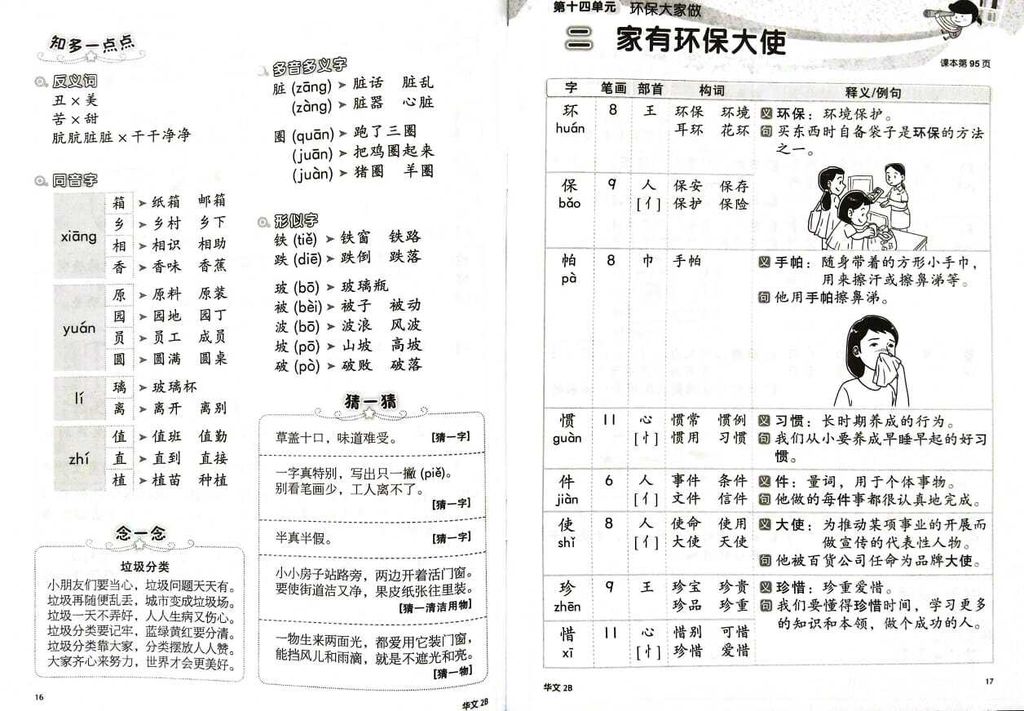 知多一点点
反义词
丑×美
苦×甜
肮肮脏脏×干干净净
同音字
xiāng
箱 ➤ 纸箱 邮箱
乡 ➤ 乡村 乡下
相 ➤ 相识 相助
香 ➤ 香味 香蕉
yuán
原 ➤ 原料 原装
园 ➤ 园地 园丁
员 ➤ 员工 成员
圆 ➤ 圆满 圆桌
lí
璃 ➤ 玻璃杯
离 ➤ 离开 离别
zhí
值 ➤ 值班 值勤
直 ➤ 直到 直接
植 ➤ 植苗 种植
念一念
垃圾分类
小朋友们要当心，垃圾问题天天有。
垃圾再随便乱丢，城市变成垃圾场。
垃圾一天不弄好，人人生病又伤心。
垃圾分类要记牢，蓝绿黄红要分清。
垃圾分类靠大家，分类摆放人人赞。
大家齐心来努力，世界才会更美好。
16
多音多义字
脏 (zāng) ➤ 脏话 脏乱
(zàng) ➤ 脏器 心脏
圈 (quān) ➤ 跑了三圈
(juān) ➤ 把鸡圈起来
(juàn) ➤ 猪圈 羊圈
形似字
铁 (tiě) ➤ 铁窗 铁路
跌 (diē) ➤ 跌倒 跌落
玻 (bō) ➤ 玻璃瓶
被 (bèi) ➤ 被子 被动
波 (bō) ➤ 波浪 风波
坡 (pō) ➤ 山坡 高坡
破 (pò) ➤ 破败 破落
猜一猜
草盖十口，味道难受。 [猜一字]
一字真特别，写出只一撇 (piě)。
别看笔画少，工人离不了。
[猜一字]
半真半假。 [猜一字]
小小房子站路旁，两边开着活门窗。
要使街道洁又净，果皮纸张往里装。
[猜一清洁用物]
一物生来两面光，都爱用它装门窗，
能挡风儿和雨滴，就是不遮光和亮。
[猜一物]
华文 2B
第十四单元 环保大家做
二 家有环保大使
课本第 95 页
字 笔画 部首 构词 释义/例句
环 8 王 环保 环境 义 环保：环境保护。
huán 耳环 花环 句 买东西时自备袋子是环保的方法
之一。
保 9 人 保安 保存
bǎo [亻] 保护 保险
帕 8 巾 手帕 义 手帕：随身带着的方形小手巾，
pà 用来擦汗或擦鼻涕等。
句 他用手帕擦鼻涕。
惯 11 心 惯常 惯例 义 习惯：长时期养成的行为。
guàn [忄] 惯用 习惯 句 我们从小要养成早睡早起的好习
惯。
件 6 人 事件 条件 义 件：量词，用于个体事物。
jiàn [亻] 文件 信件 句 他做的每件事都很认真地完成。
使 8 人 使命 使用 义 大使：为推动某项事业的开展而
shǐ [亻] 大使 天使 做宣传的代表性人物。
句 他被百货公司任命为品牌大使。
珍 9 王 珍宝 珍贵 义 珍惜：珍重爱惜。
zhēn 珍品 珍重 句 我们要懂得珍惜时间，学习更多
的知识和本领，做个成功的人。
惜 11 心 惜别 可惜
xī [忄] 珍惜 爱惜
华文 2B
17